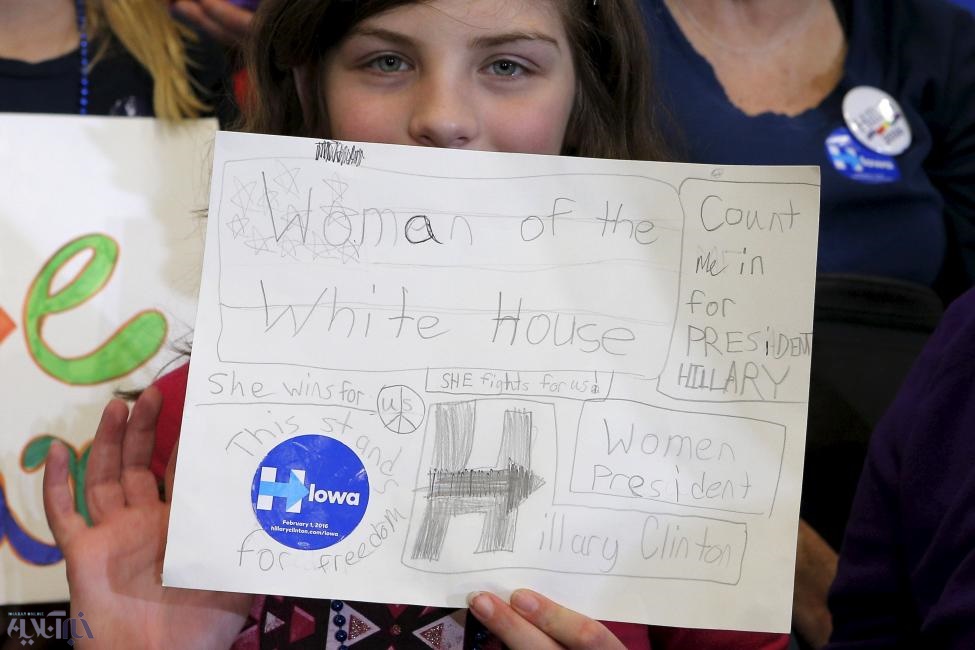 Woman of the
White House
Count
Me in
for
PRESiDENT
HILLARY
She wins for us
SHE fights for us!
This stands
for freedom
H Iowa
February 1, 2016
hillaryclinton.com/iowa
Women
President
Hillary Clinton
H Iowa
خبرآنلاین